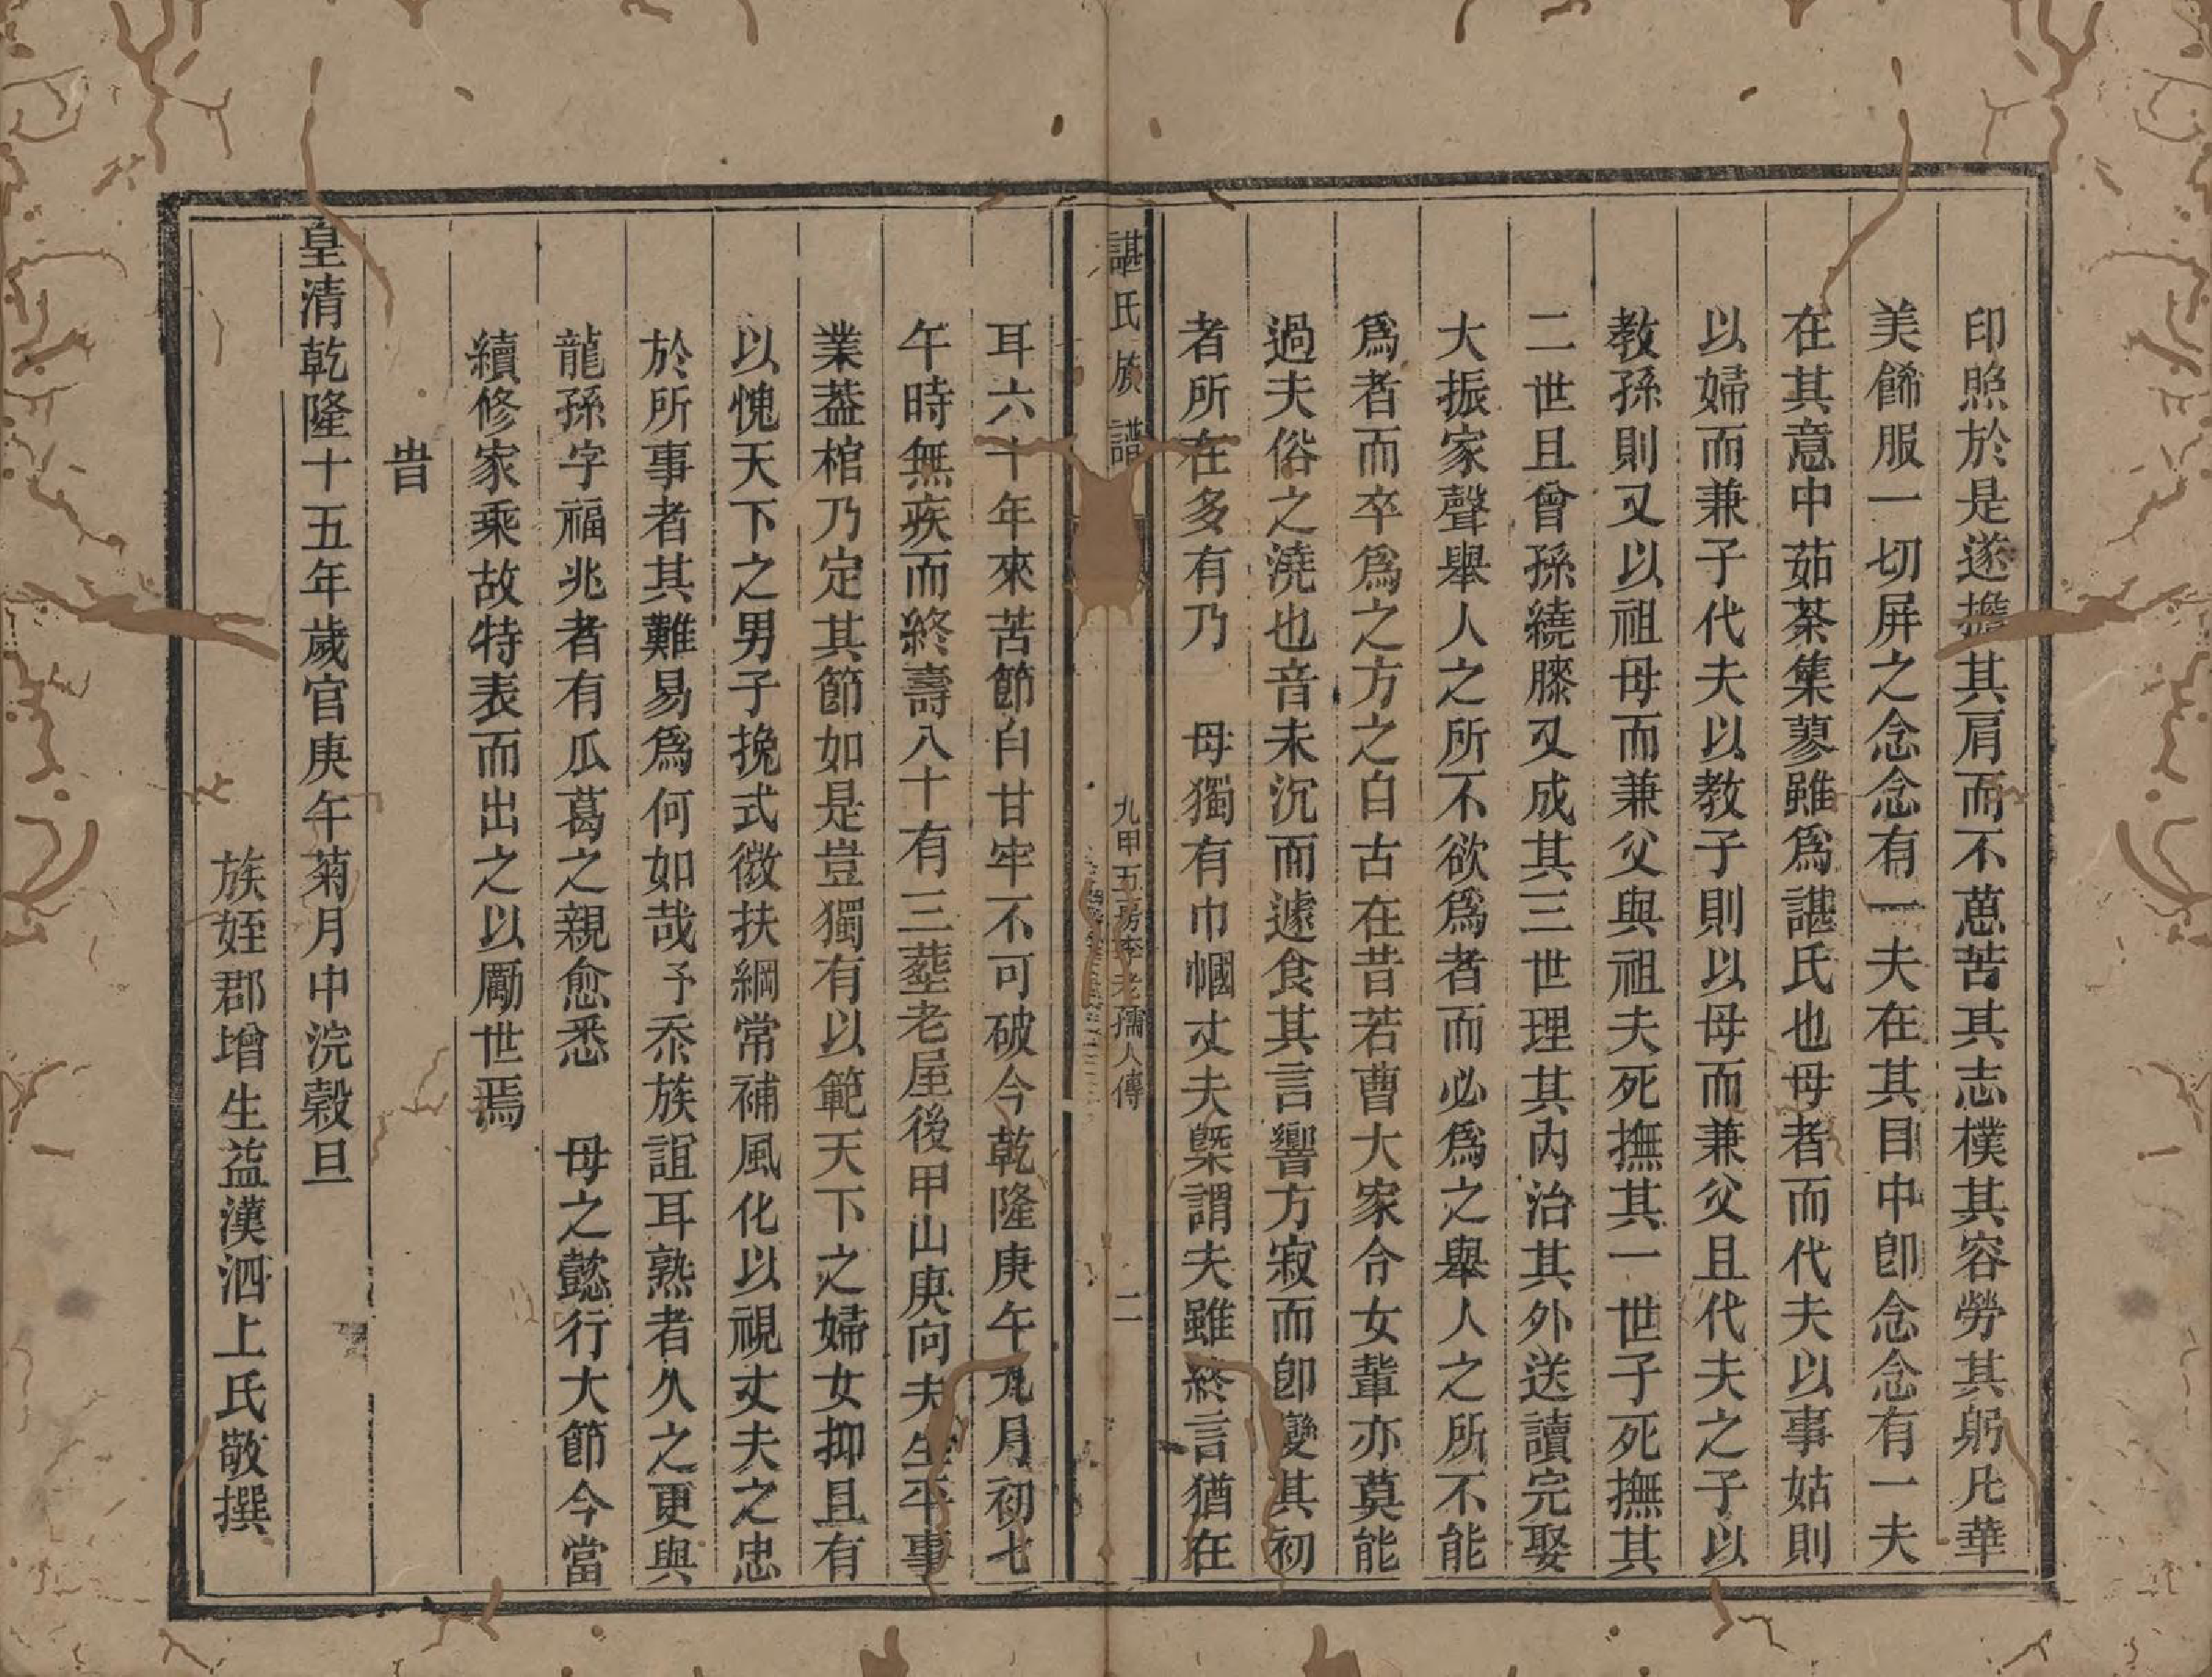 印照於是遂擔其肩而不葸苦其志樸其容勞其躬凡華
美餙服一切屏之念念有一夫在其目中卽念念有一夫
在其意中茹荼集蓼雖爲諶氏也母者而代夫以事姑則
以婦而兼子代夫以教子則以母而兼父且代夫之子以
教孫則又以祖母而兼父與祖夫死撫其一世子死撫其
二世且曾孫繞膝又成其三世理其內治其外送讀完娶
大振家聲舉人之所不欲爲者而必爲之舉人之所不能
爲者而卒爲之方之自古在昔若曹大家令女輩亦莫能
過夫俗之澆也音未沉而遽食其言響方寂而卽變其初
者所在多有乃　母獨有巾幗丈夫槩謂夫雖終言猶在
諶氏族譜
九甲五房李老孺人傳
二
耳六十年來苦節自甘牢不可破今乾隆庚午九月初七
午時無疾而終壽八十有三塟老屋後甲山庚向夫生平事
業葢棺乃定其節如是豈獨有以範天下之婦女抑且有
以愧天下之男子挽式微扶綱常補風化以視丈夫之忠
於所事者其難易爲何如哉予忝族誼耳熟者久之更與
龍孫字福兆者有瓜葛之親愈悉　母之懿行大節今當
續修家乘故特表而出之以勵世焉
旹
皇清乾隆十五年歲官庚午菊月中浣穀旦
族姪郡增生益漢泗上氏敬撰